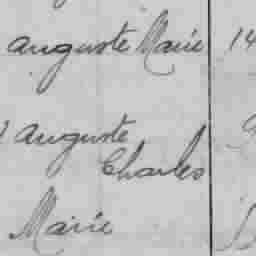 Auguste Marie 14
Auguste
Charles
Marie